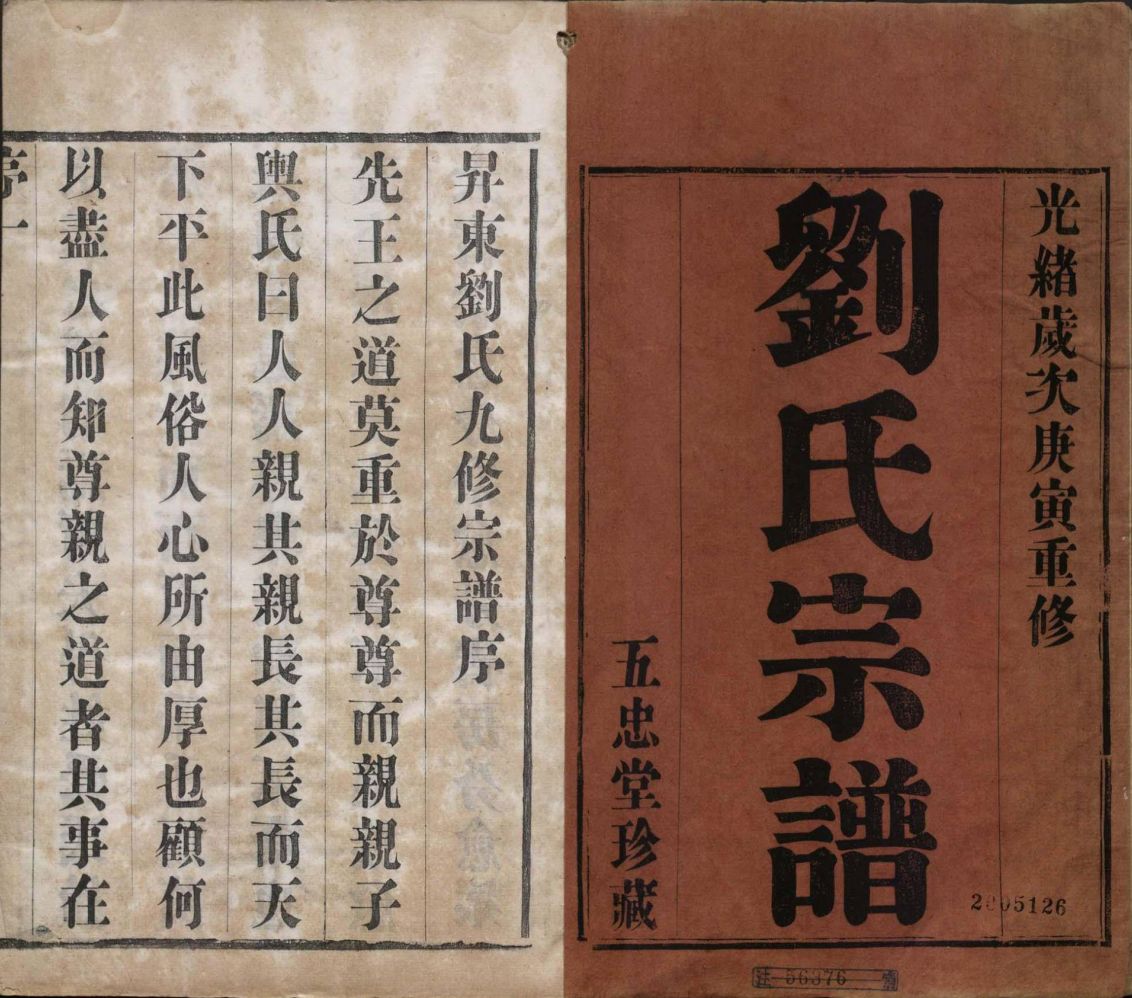 光緒歲次庚寅重修
劉氏宗譜
五忠堂珍藏
2005126
56376
昇東劉氏九修宗譜序
先王之道莫重於尊尊而親親子
輿氏曰人人親其親長其長而天
下平此風俗人心所由厚也顧何
以盡人而知尊親之道者其事在
序一